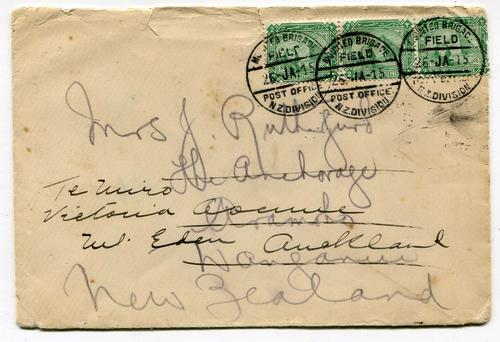 MOUNTED BRIGADE
FIELD
26 JA 15
POST OFFICE
N.Z. DIVISION
MOUNTED BRIGADE
FIELD
26 JA 15
POST OFFICE
N.Z. DIVISION
MOUNTED BRIGADE
FIELD
26 JA 15
POST OFFICE
N.Z. DIVISION
Mrs J. Rutherfurd
The Anchorage
Te Miro
Aramoho
Victoria Avenue
Mt. Eden Auckland
Wanganui
New Zealand